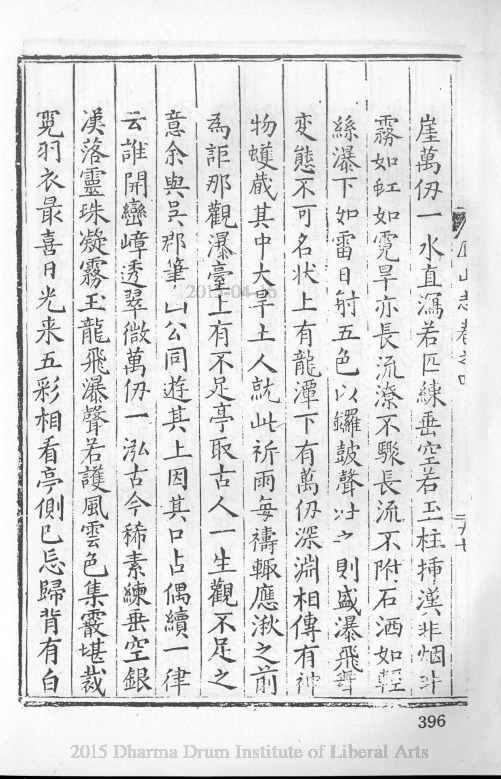 崖萬仞一水直瀉若匹練垂空若玉柱揷漢非烟非
霧如虹如霓旱亦長流潦不驟長流不附石洒如輕
絲瀑下如雷日射五色以鑼皷聲
則盛瀑飛舞
変態不可名状上有龍潭下有萬仞深淵相傳有神
物蠖蔵其中大旱土人就此祈雨每禱輙應湫之前
為詎那觀瀑臺上有不足亭取古人一生觀不足之
意余與吳郡筆山公同遊其上因其口占偶續一律
云誰開巒嶂透翠微萬仞一泓古今稀素練垂空銀
漢落靈珠凝霧玉龍飛瀑聲若護風雲色集霰堪裁
霓羽衣最喜日光来五彩相看亭側已忘歸背有白
山志卷之四
396
2015-04-16
2015 Dharma Drum Institute of Liberal Arts